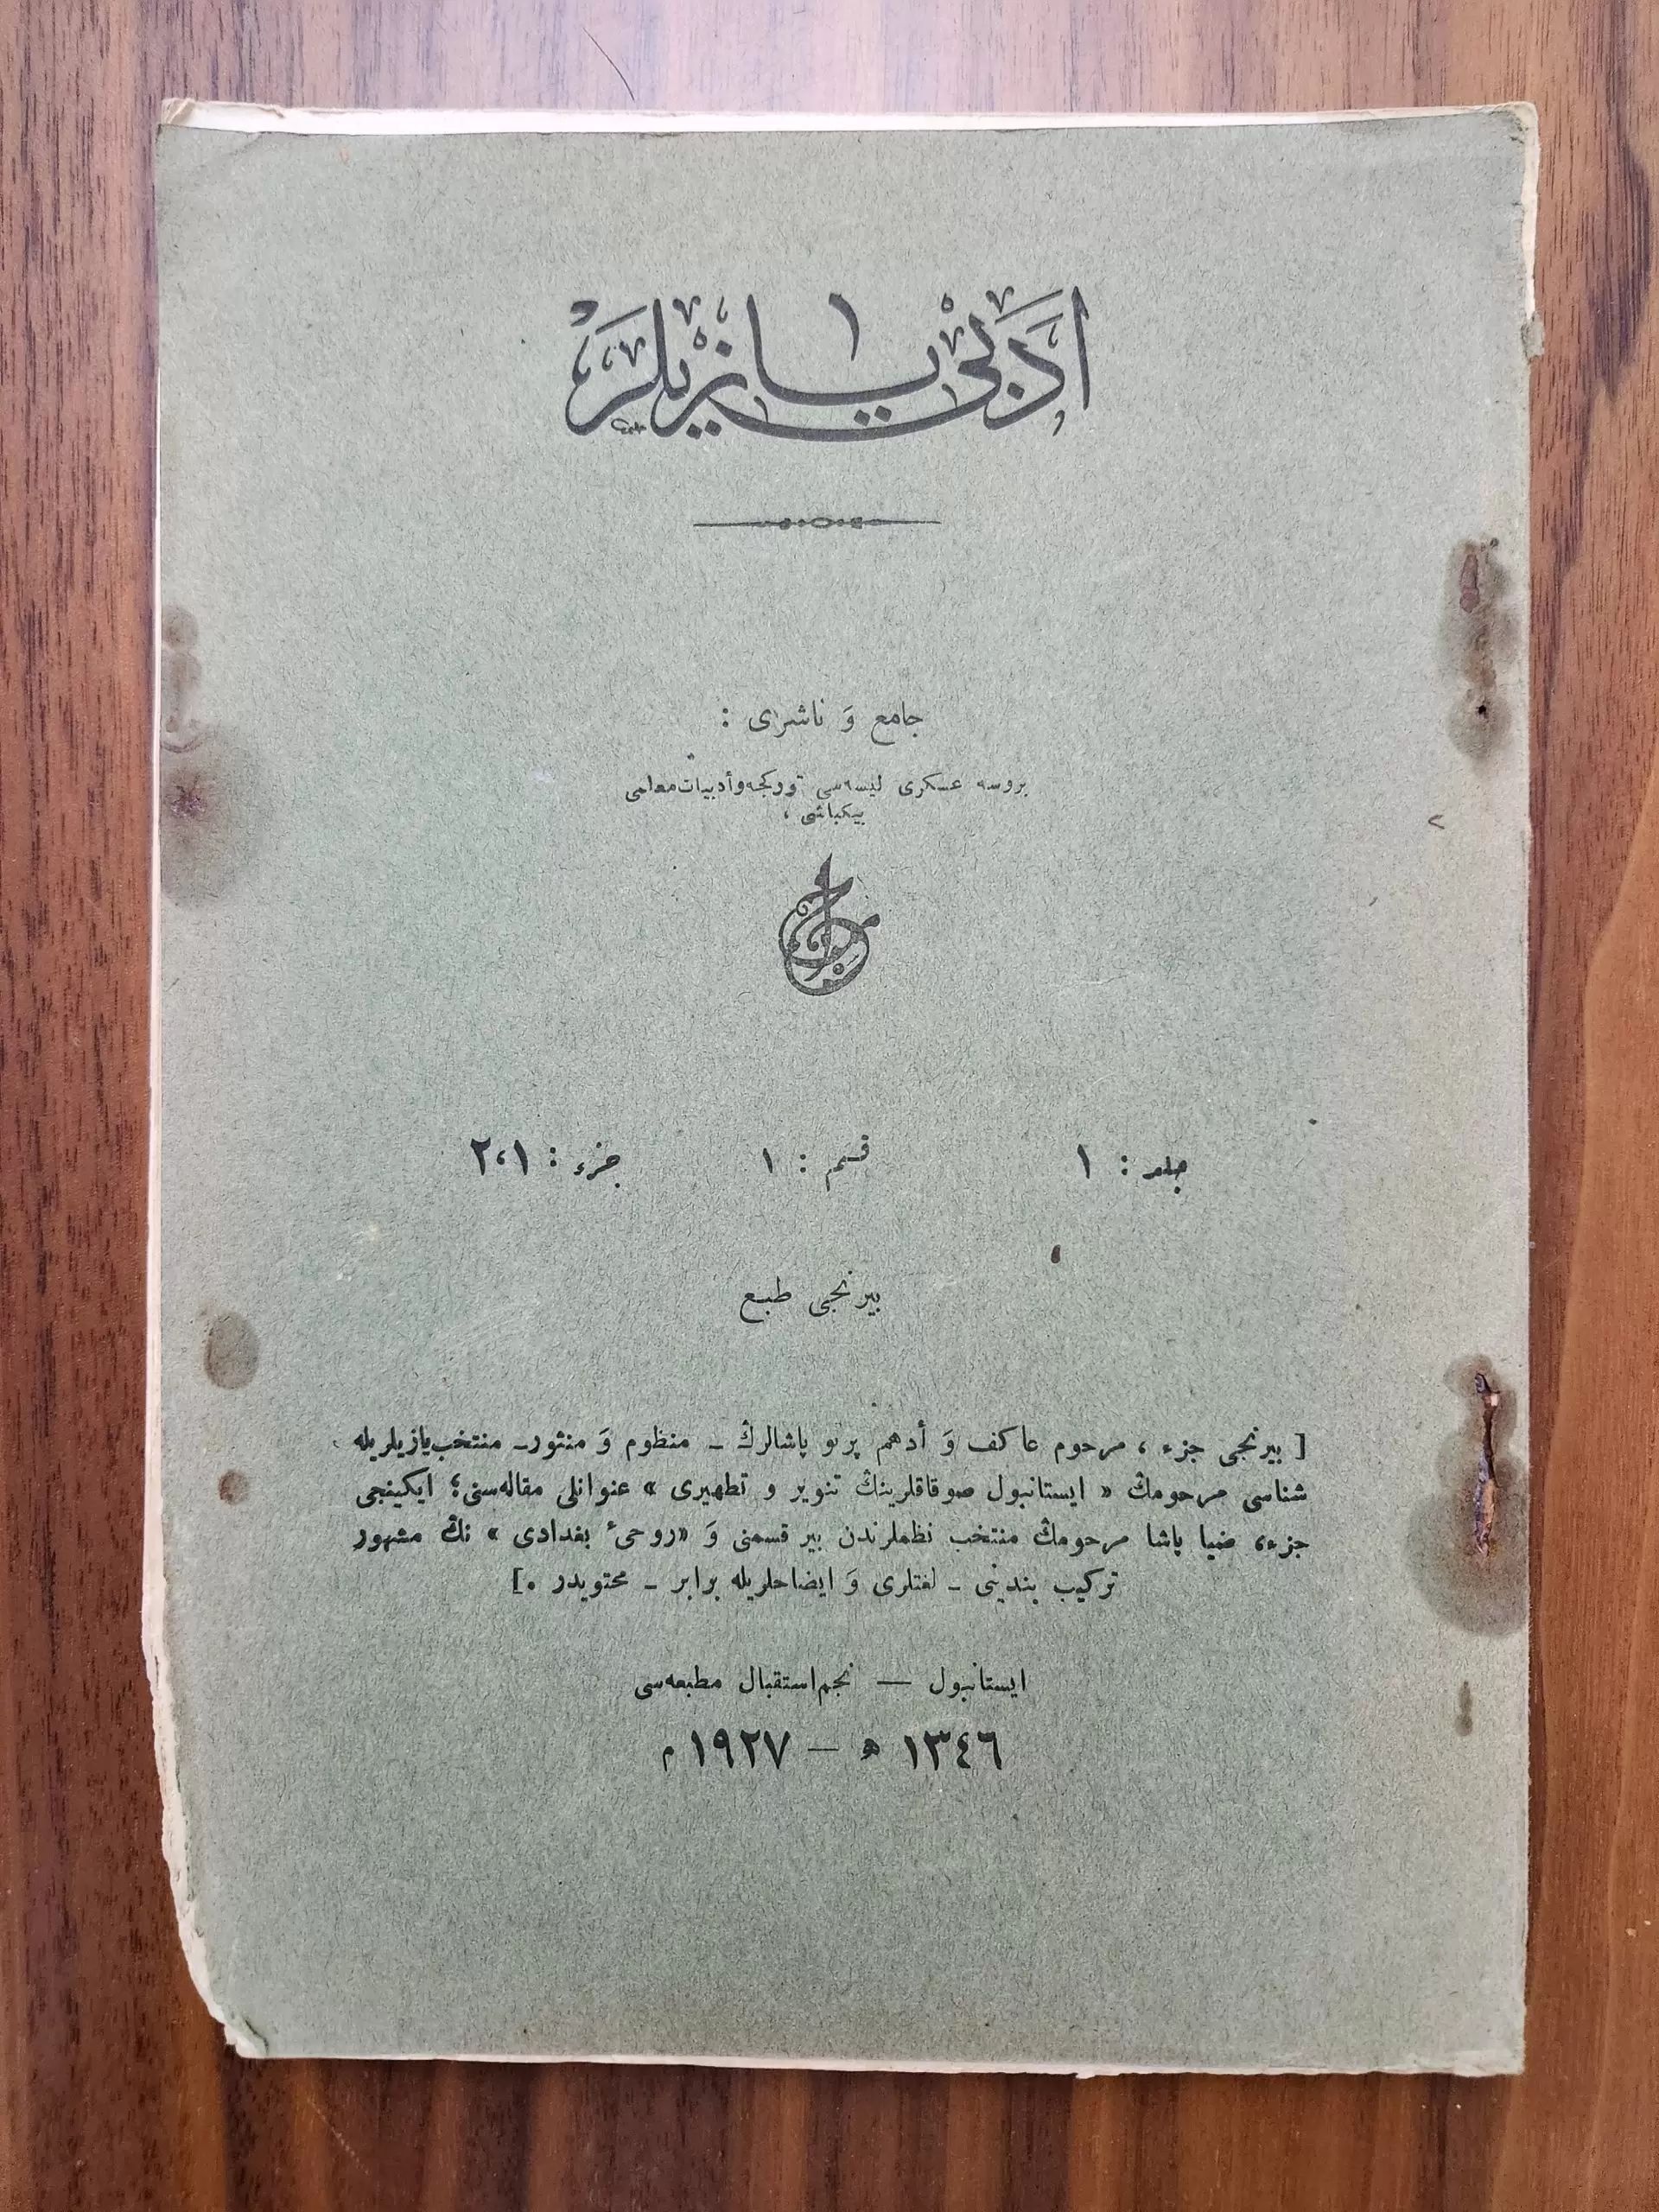 ادبی یازیلر
١
جامع وَ ناشری :
بروسه عسکری لیسه‌سی تورکجه وأدبیات معلمی
بیکباشی ،
جلد : ١ قسم : ١ جزء : ١،٢
بیرنجی طبع
[ بیرنجی جزء ، مرحوم عاکف وَ أدهم پرتو پاشالرڭ ـ منظوم وَ منثور ـ منتخب یازیلریله
شناسی مرحومڭ « ایستانبول صوقاقلرینڭ تنویر و تطهیری » عنوانلی مقاله‌سنی؛ ایکینجی
جزء، ضیا پاشا مرحومڭ منتخب نظملرندن بیر قسمنی وَ «روحیٔ بغدادی » نڭ مشهور
ترکیب بندینی ـ لغتلری وَ ایضاحلریله برابر ـ محتویدر .]
ایستانبول — نجم استقبال مطبعه‌سی
١٣٤٦ ه — ١٩٢٧ م